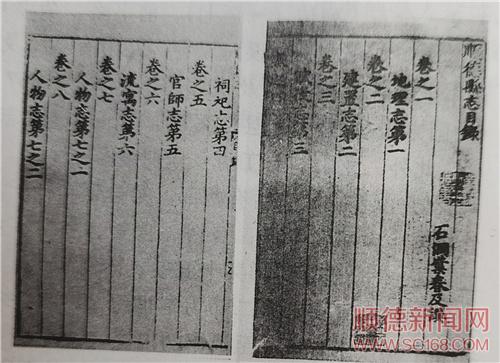 順德縣志目錄
石洞葉春及撰
卷之一
地理志第一
卷之二
建置志第二
卷之三
志第三
祠祀志第四
卷之五
官師志第五
卷之六
流寓志第六
卷之七
人物志第七之一
卷之八
人物志第七之二
顺德新闻网
www.SC168.com